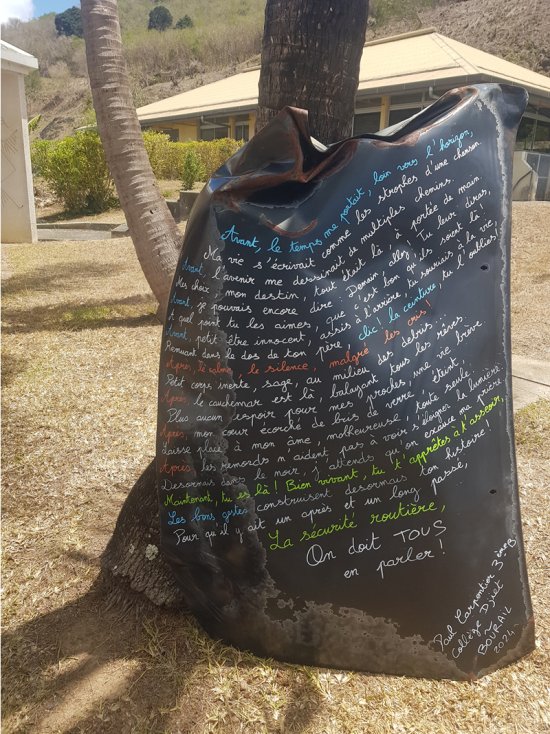 Avant, le temps me portait, loin vers l'horizon,
Ma vie s'écrivait comme les strophes d'une chanson.
Avant, l'avenir me dessinait de multiples chemins,
Mes choix, mon destin, tout était là, à portée de main.
Avant, je pouvais encore dire "Demain allez, tu leur diras,
A quel point tu les aimes, que c'est bon qu'ils soient là".
Avant, petit être innocent, assis à l'arrière, tu souriais à la vie,
Remuant dans le dos de ton père, clic la ceinture, tu l'oublies.
Après, le calme, le silence, malgré les cris,
Petit corps inerte, sage, au milieu des débris.
Après le cauchemar est là, balayant tous les rêves.
Plus aucun espoir pour mes proches, une vie brève
Après mon cœur écorché de bris de verre, éteint.
Laisse place à mon âme, malheureuse, toute seule.
Après, les remords n'aident pas à voir s'éloigner la lumière
Désormais dans le noir, j'attends qu'on exauce ma prière
Maintenant, tu es là ! Bien vivant, tu t'apprêtes à t'asseoir,
Les bons gestes construisent désormais ton histoire !
Pour qu'il y ait un après et un long passé,
La sécurité routière,
On doit TOUS
en parler !
Paul Carpentier 3ème
Collège Djiet
BOURAIL
2024